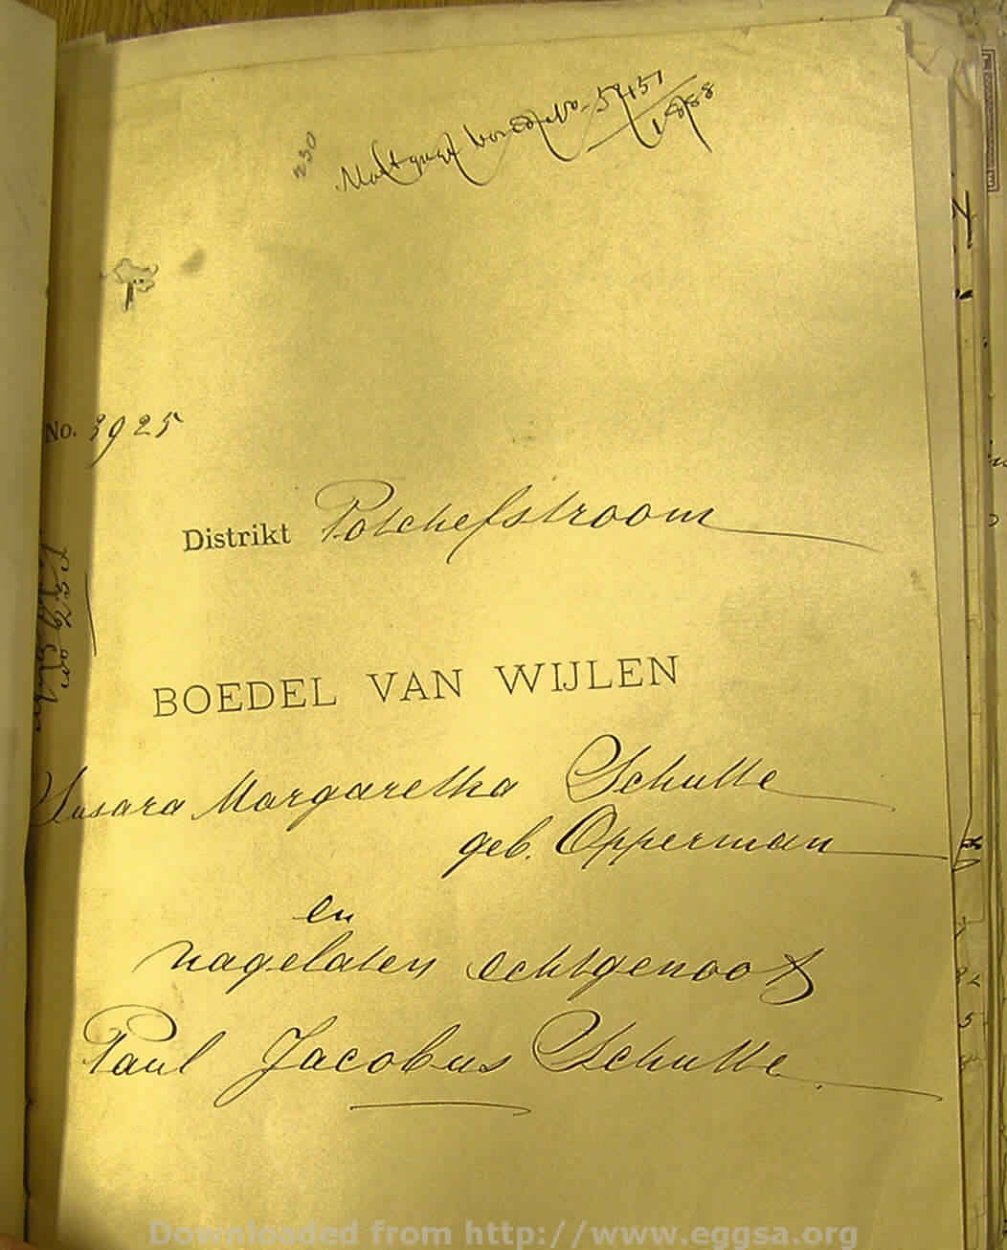 230
Mortgage bond No. 5451/1888
No. 3925
Distrikt Potchefstroom
BOEDEL VAN WIJLEN
Susara Margaretha Schutte
geb. Opperman
en
nagelaten echtgenoot
Paul Jacobus Schutte
Downloaded from http://www.eggsa.org